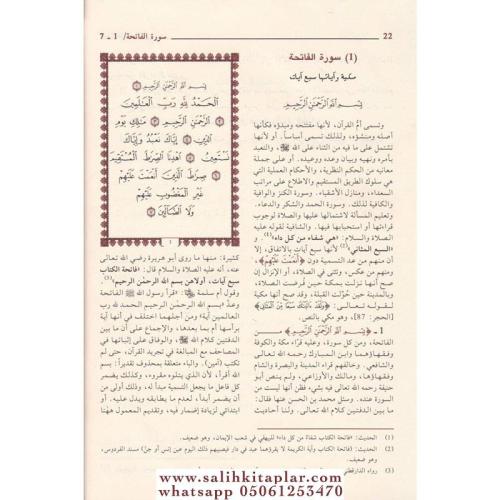 22
سورة الفاتحة/ 1 ـ 7
(1) سورة الفاتحة
مكية وآياتها سبع آيات
بِسْمِ اللهِ الرَّحْمَنِ الرَّحِيمِ
وتسمى أم القرآن، لأنها مفتتحه ومبدؤه فكأنها
أصله ومنشؤه، ولذلك تسمى أساساً. أو لأنها
تشتمل على ما فيه من الثناء على الله ﷻ، والتعبد
بأمره ونهيه وبيان وعده ووعيده. أو على جملة
معانيه من الحكم النظرية، والأحكام العملية التي
هي سلوك الطريق المستقيم والاطلاع على مراتب
السعداء، ومنازل الأشقياء. وسورة الكنز والوافية
والكافية لذلك. وسورة الحمد والشكر والدعاء.
وتعليم المسألة لاشتمالها عليها والصلاة لوجوب
قراءتها أو استحبابها فيها. والشافية والشفاء لقوله عليه
الصلاة والسلام: «هي شفاء من كل داء»(1). و
«السبع المثاني»(2) لأنها سبع آيات بالاتفاق، إلا
أن منهم من عد التسمية دون ﴿أَنْعَمْتَ عَلَيْهِمْ﴾،
ومنهم من عكس، وتثنى في الصلاة، أو الإنزال إن
صح أنها نزلت بمكة حين فُرضت الصلاة،
وبالمدينة حين حُوّلت القبلة، وقد صح أنها مكية
لقوله تعالى: ﴿وَلَقَدْ آتَيْنَاكَ سَبْعًا مِنَ الْمَثَانِي﴾
[الحجر: 87]، وهو مكي بالنص.
1 ـ ﴿بِسْمِ اللهِ الرَّحْمَنِ الرَّحِيمِ﴾ من
الفاتحة، ومن كل سورة، وعليه قراء مكة والكوفة
وفقهاؤهما وابن المبارك رحمه الله تعالى
والشافعي. وخالفهم قراء المدينة والبصرة والشام
وفقهاؤها، ومالك والأوزاعي، ولم ينص أبو
حنيفة رحمه الله تعالى فيه بشيء فظن أنها ليست من
السورة عنده. وسئل محمد بن الحسن عنها فقال:
ما بين الدفتين كلام الله تعالى. ولنا أحاديث
بِسْمِ اللهِ الرَّحْمَنِ الرَّحِيمِ
الْحَمْدُ لِلَّهِ رَبِّ الْعَالَمِينَ
الرَّحْمَنِ الرَّحِيمِ مَالِكِ يَوْمِ
الدِّينِ إِيَّاكَ نَعْبُدُ وَإِيَّاكَ
نَسْتَعِينُ اهْدِنَا الصِّرَاطَ الْمُسْتَقِيمَ
صِرَاطَ الَّذِينَ أَنْعَمْتَ عَلَيْهِمْ
غَيْرِ الْمَغْضُوبِ عَلَيْهِمْ
وَلَا الضَّالِّينَ
كثيرة: منها ما روى أبو هريرة رضي الله تعالى
عنه، أنه عليه الصلاة والسلام قال: «فاتحة الكتاب
سبع آيات، أولاهن بسم الله الرحمن الرحيم»(3).
وقول أم سلمة: «قرأ رسول الله ﷺ الفاتحة
وعدّ «بسم الله الرحمن الرحيم الحمد لله رب
العالمين» آية» ومن أجلهما اختلف في أنها آية
برأسها أم بما بعدها، والإجماع على أن ما بين
الدفتين كلام الله ﷻ والوفاق على إثباتها في
المصاحف مع المبالغة في تجريد القرآن، حتى لم
تكتب (آمين). والباء متعلقة بمحذوف تقديره: بسم
الله أقرأ، لأن الذي يتلوه مقروء، وكذلك يضمر
كل فاعل ما يجعل التسمية مبدأ له، وذلك أولى من
أن يضمر أبدأ، لعدم ما يطابقه ويدل عليه. أو
ابتدائي لزيادة إضمار فيه، وتقديم المعمول ههنا
(1) الحديث: «فاتحة الكتاب شفاء من كل داء» للبيهقي في شعب الإيمان، وهو ضعيف.
(2) الحديث: «فاتحة الكتاب وآية الكرسي لا يقرؤهما عبد في دار فيصيبهم ذلك اليوم عين إنس أو جن» مسند الفردوس، وهو ضعيف.
(3) رواه الدارقطني
www.salihkitaplar.com
whatsapp 05061253470